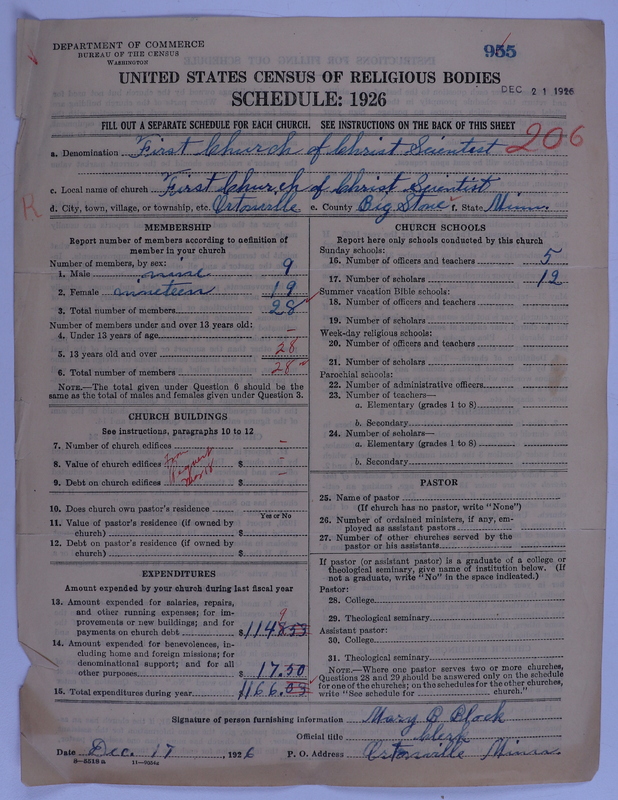 DEPARTMENT OF COMMERCE
BUREAU OF THE CENSUS
WASHINGTON
955
UNITED STATES CENSUS OF RELIGIOUS BODIES
DEC 21 1926
SCHEDULE: 1926
FILL OUT A SEPARATE SCHEDULE FOR EACH CHURCH. SEE INSTRUCTIONS ON THE BACK OF THIS SHEET
206
a. Denomination First Church of Christ Scientest
c. Local name of church First Church of Christ Scientist
R
d. City, town, village, or township, etc. Ortonville e. County Big Stone f. State Minn.
MEMBERSHIP
Report number of members according to definition of member in your church
Number of members, by sex:
1. Male nine 9
2. Female nineteen 19
3. Total number of members 28
Number of members under and over 13 years old:
4. Under 13 years of age –
5. 13 years old and over 28
6. Total number of members 28
NOTE.—The total given under Question 6 should be the
same as the total of males and females given under Question 3.
CHURCH BUILDINGS
See instructions, paragraphs 10 to 12
7. Number of church edifices –
8. Value of church edifices $ –
9. Debt on church edifices $ –
10. Does church own pastor's residence
Yes or No
11. Value of pastor's residence (if owned by
church) $
12. Debt on pastor's residence (if owned by
church) $
EXPENDITURES
Amount expended by your church during last fiscal year
13. Amount expended for salaries, repairs,
and other running expenses; for im-
provements or new buildings; and for
payments on church debt $
14. Amount expended for benevolences, in-
cluding home and foreign missions; for
denominational support; and for all
other purposes $ 17.50
15. Total expenditures during year $
CHURCH SCHOOLS
Report here only schools conducted by this church
Sunday schools:
16. Number of officers and teachers 5
17. Number of scholars 12
Summer vacation Bible schools:
18. Number of officers and teachers
19. Number of scholars
Week-day religious schools:
20. Number of officers and teachers
21. Number of scholars
Parochial schools:
22. Number of administrative officers
23. Number of teachers—
a. Elementary (grades 1 to 8)
b. Secondary
24. Number of scholars—
a. Elementary (grades 1 to 8)
b. Secondary
PASTOR
25. Name of pastor
(If church has no pastor, write "None")
26. Number of ordained ministers, if any, em-
ployed as assistant pastors
27. Number of other churches served by the
pastor or his assistants
If pastor (or assistant pastor) is a graduate of a college or
theological seminary, give name of institution below. (If
not a graduate, write "No" in the space indicated.)
Pastor:
28. College
29. Theological seminary
Assistant pastor:
30. College
31. Theological seminary
NOTE.—Where one pastor serves two or more churches,
Questions 28 and 29 should be answered only on the schedule
for one of the churches; on the schedules for the other churches,
write "See schedule for church."
Signature of person furnishing information Mary
Official title Clerk
Date Dec. 17, 1926 P. O. Address Ortonville Minn.
8—5518 a